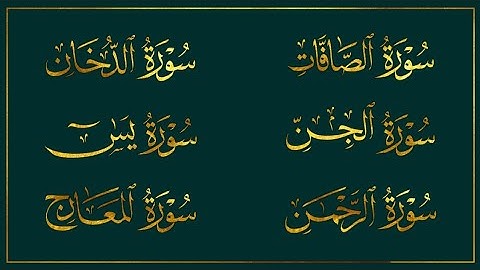 سُورَةُ ٱلصَّافَّاتِ
سُورَةُ ٱلدُّخَانِ
سُورَةُ ٱلْجِنِّ
سُورَةُ يسٓ
سُورَةُ ٱلرَّحْمَٰن
سُورَةُ ٱلْمَعَارِجِ